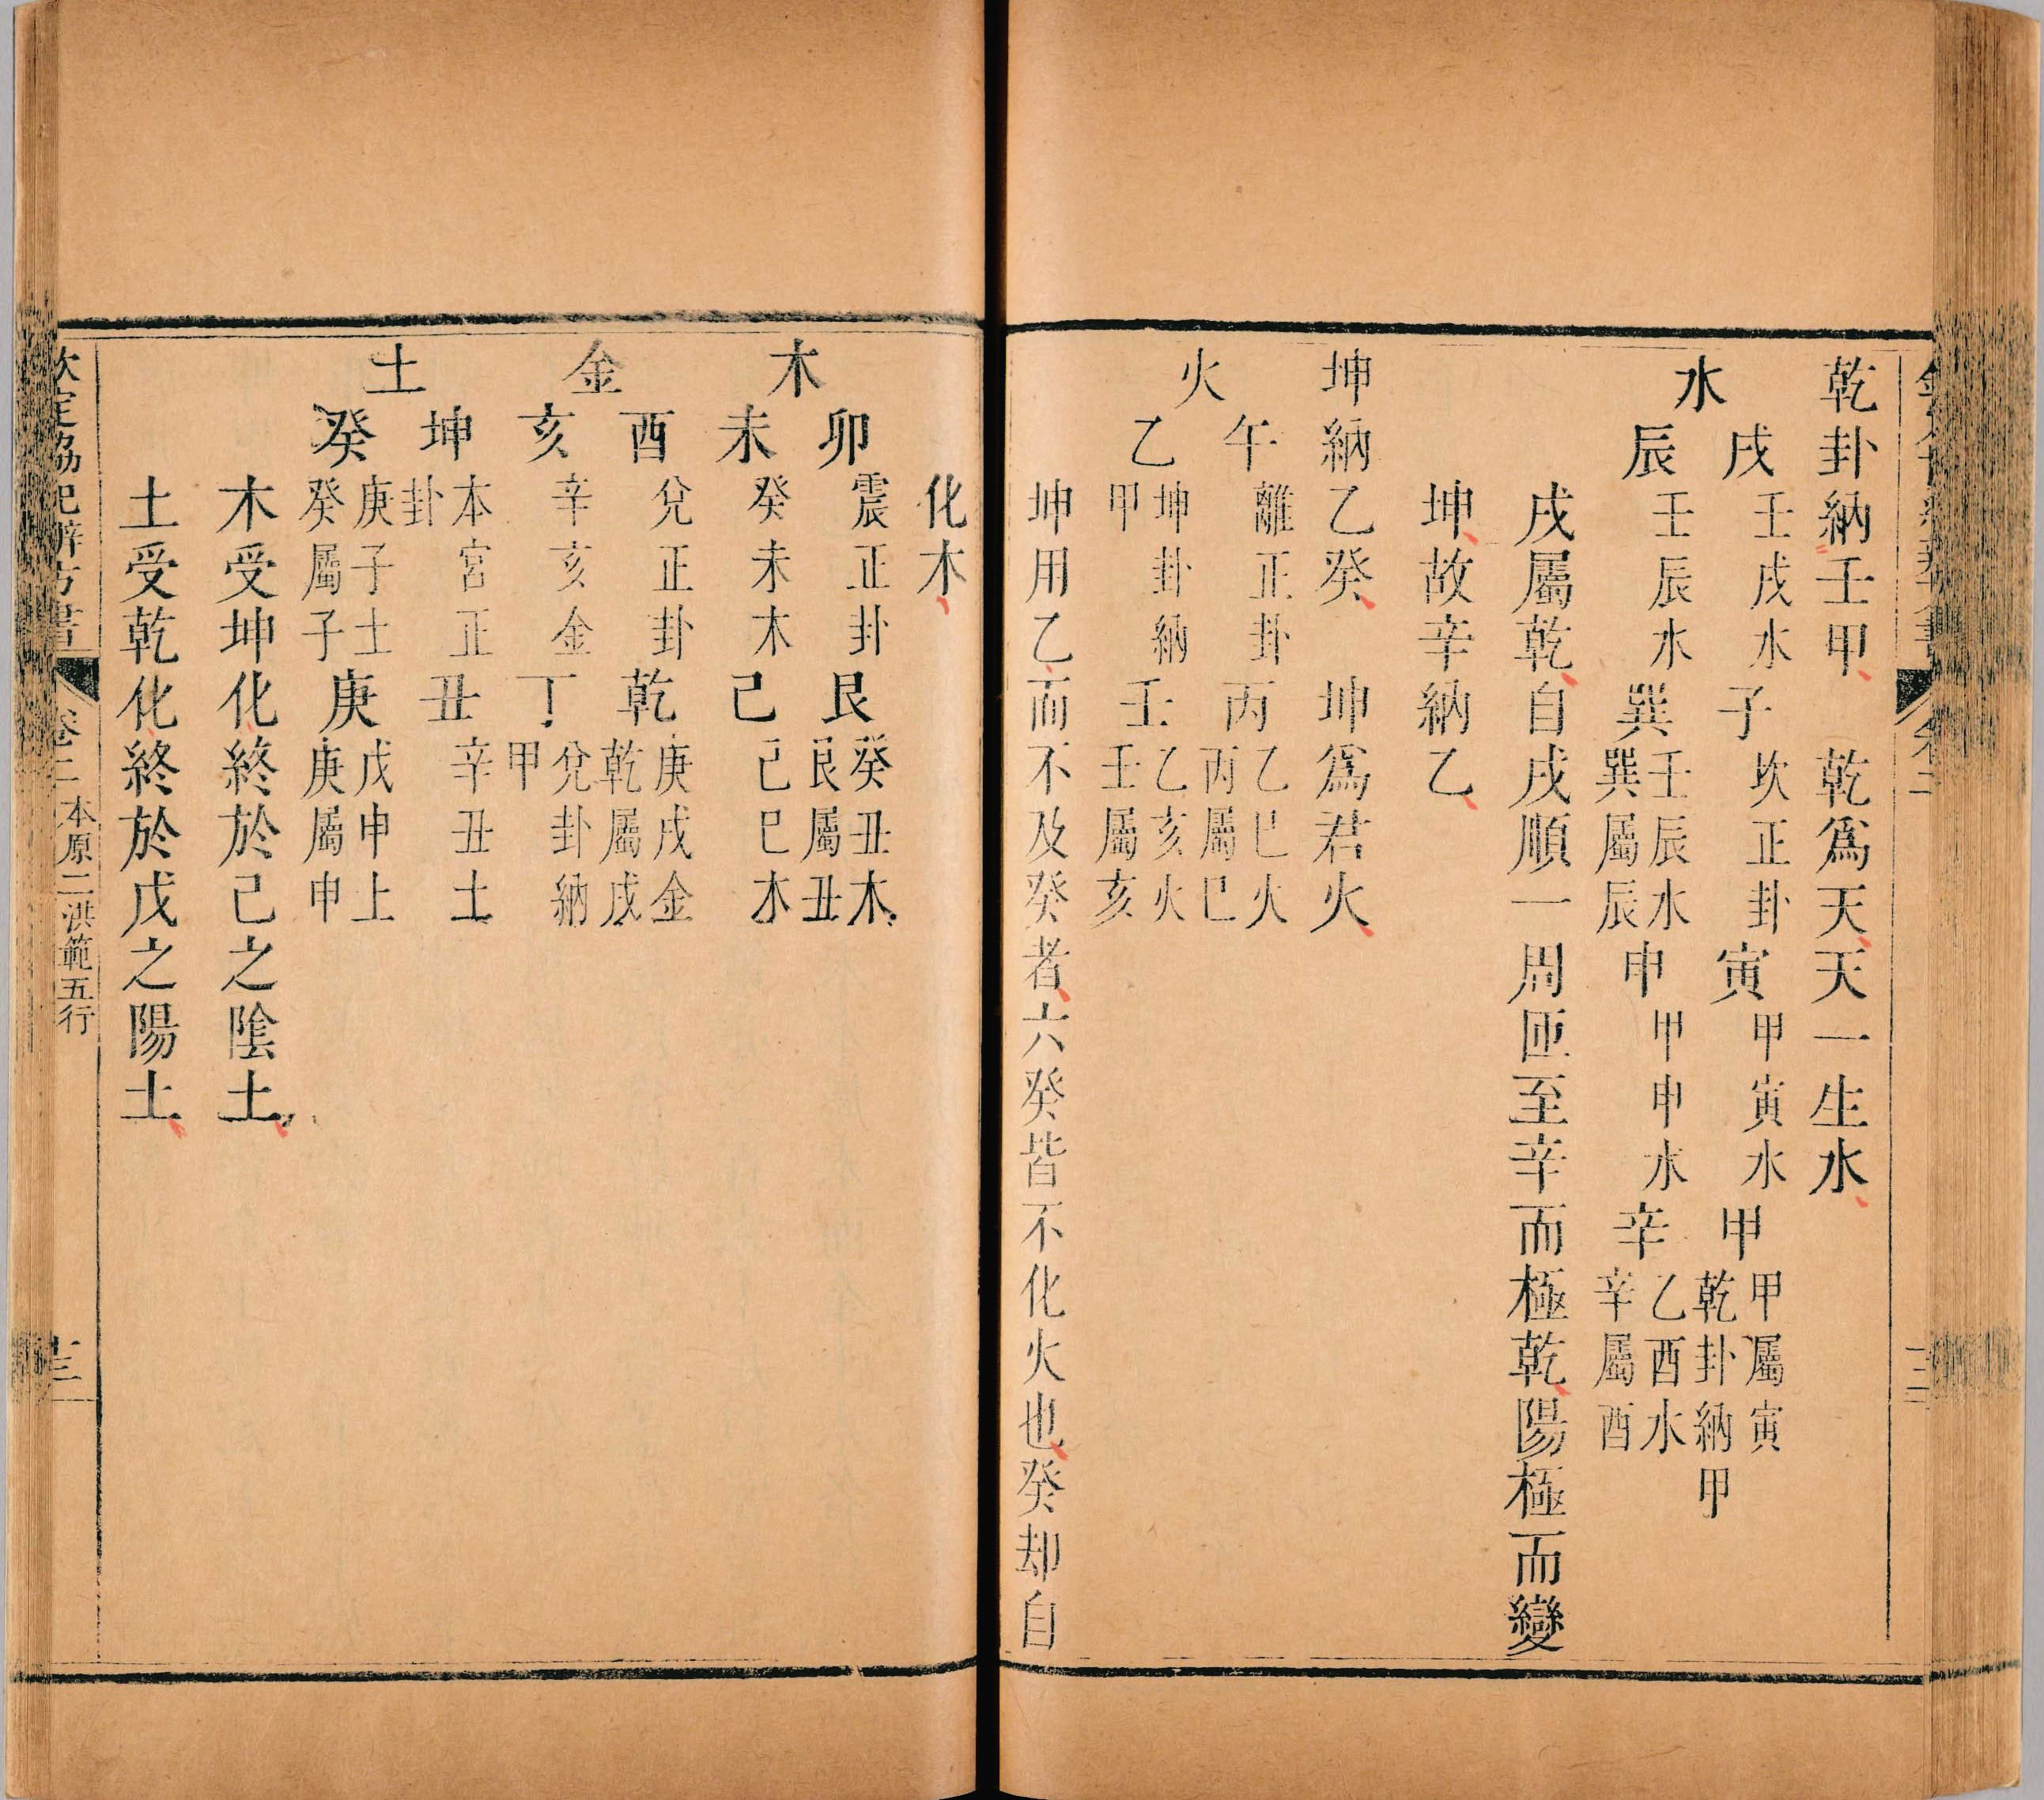 乾卦納壬甲、　乾爲天、天一生水、
水
戌壬戌水子坎正卦寅甲寅水甲甲屬寅乾卦納甲
辰壬辰水巽壬辰水巽屬辰申甲申水辛乙酉水辛屬酉
戌屬乾、自戌順一周匝至辛而極乾、陽極而變
坤、故辛納乙、
坤納乙癸、　坤爲君火、
火
午離正卦丙乙巳火丙屬巳
乙坤卦納甲壬乙亥火壬屬亥
坤用乙、而不及癸者、六癸皆不化火也、癸却自
化木、
木
卯震正卦艮癸丑木艮屬丑
未癸未木己己巳木
金
酉兌正卦乾庚戌金乾屬戌
亥辛亥金丁兌卦納甲
土
坤本宮正卦丑辛丑土
癸庚子土癸屬子庚戊申土庚屬申
木受坤化、終於己之陰土、
土受乾化、終於戊之陽土、
欽定協紀辨方書　卷二　本原二洪範五行　十三